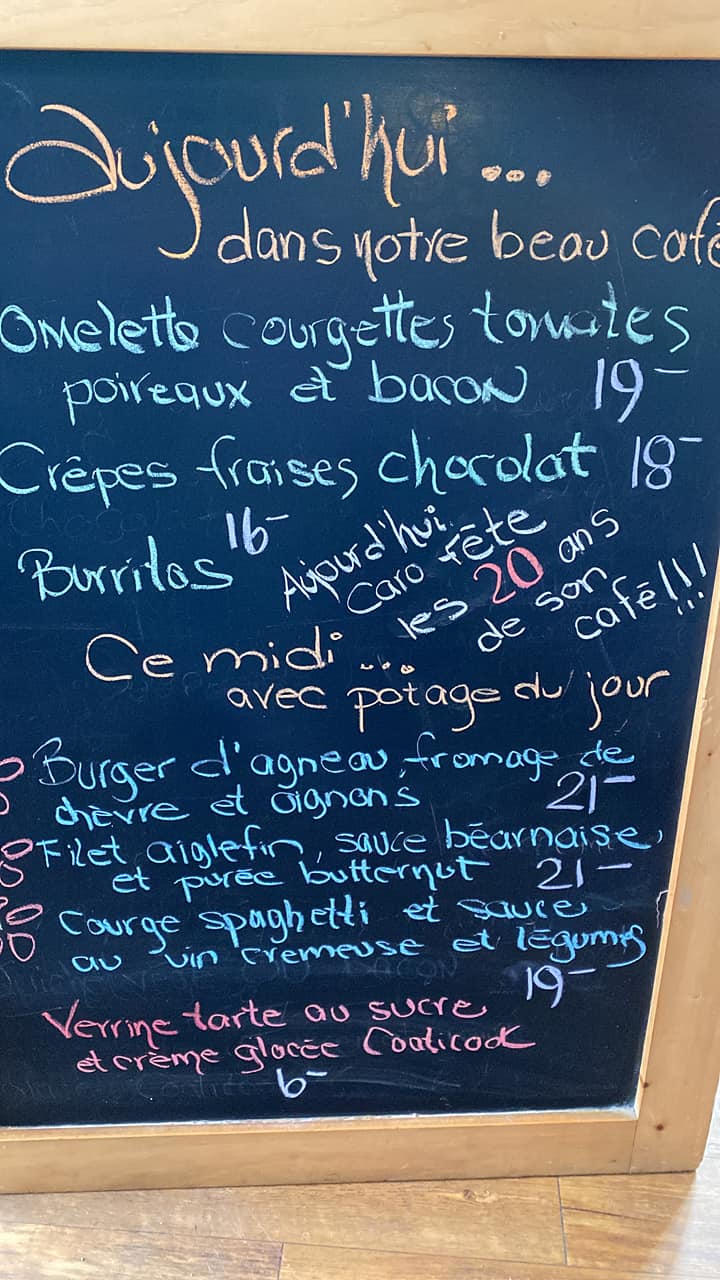 Aujourd'hui...
dans notre beau café
Omelette courgettes tomates
poireaux et bacon 19-
Crêpes fraises chocolat 18-
Burritos 16-
Aujourd'hui
Caro fête
les 20 ans
de son
café!!!
Ce midi...
avec potage du jour
Burger d'agneau, fromage de
chèvre et oignons 21-
Filet aiglefin, sauce béarnaise,
et purée butternut 21-
Courge spaghetti et sauce
au vin crémeuse et légumes
19-
Verrine tarte au sucre
et crème glacée Coaticook
6-